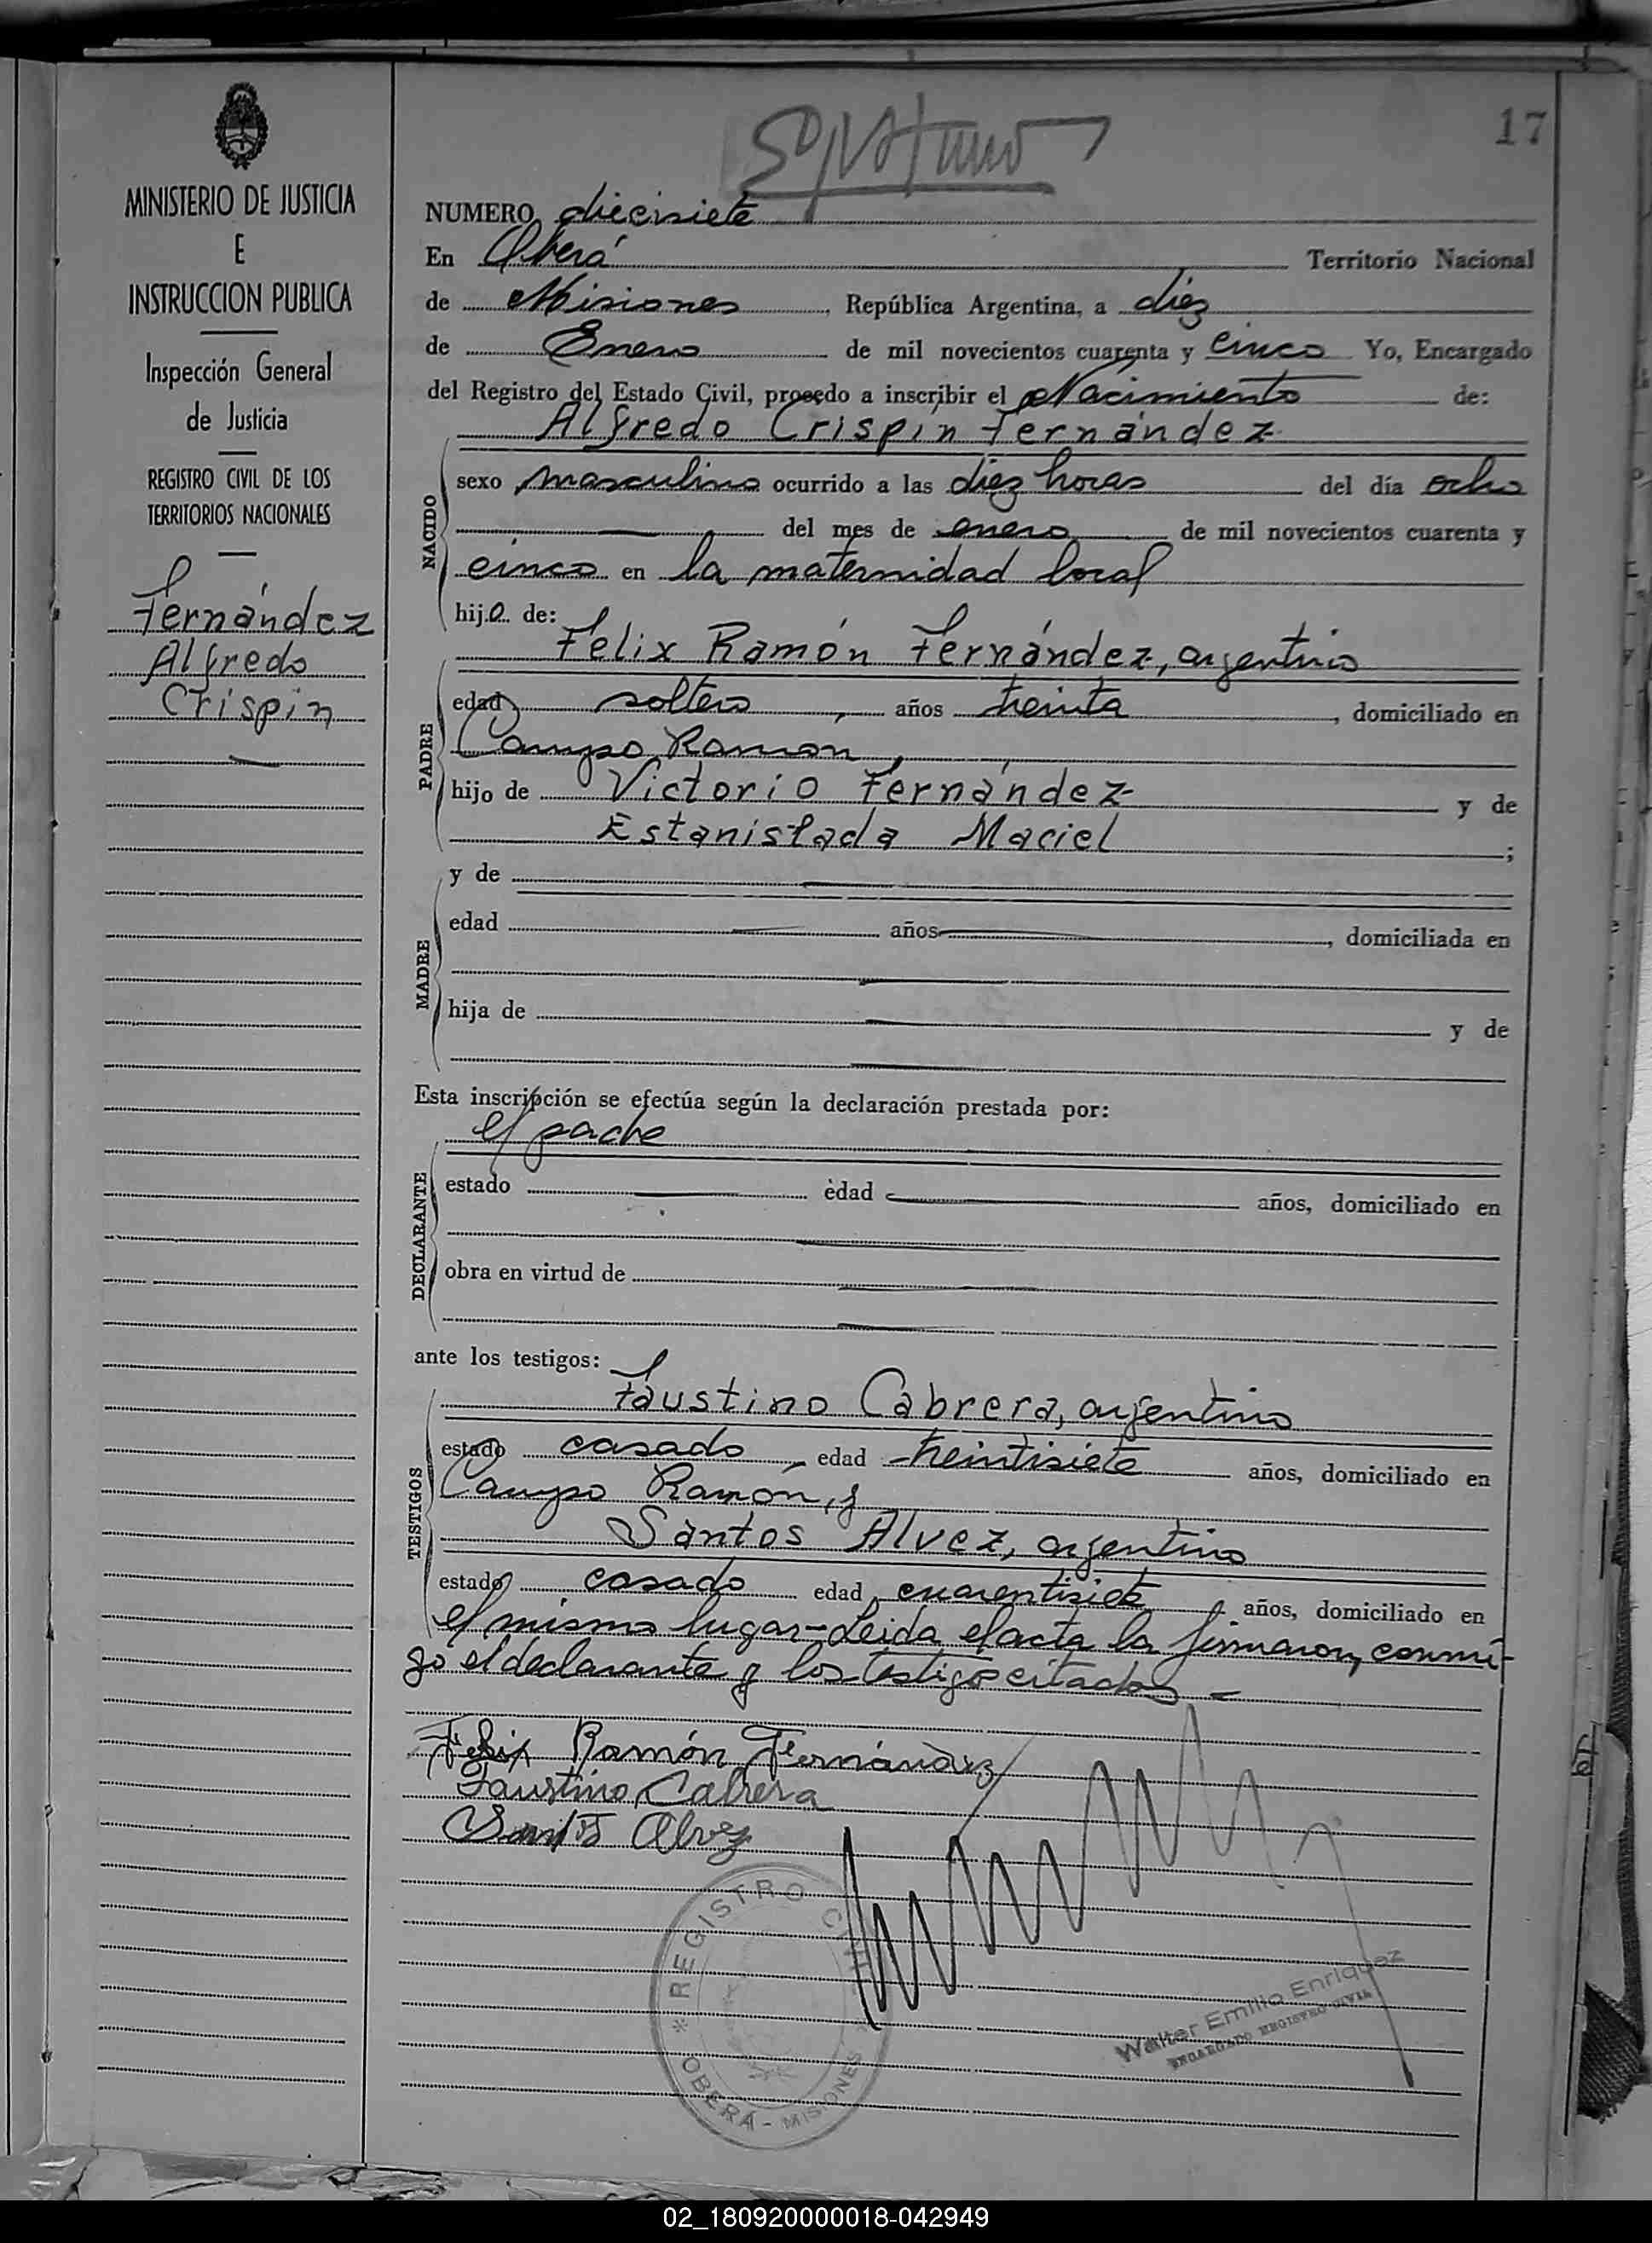 17
MINISTERIO DE JUSTICIA
E
INSTRUCCION PUBLICA
Inspección General
de Justicia
REGISTRO CIVIL DE LOS
TERRITORIOS NACIONALES
Fernández
Alfredo
Crispín
NUMERO diecisiete
En Oberá Territorio Nacional
de Misiones, República Argentina, a diez
de Enero de mil novecientos cuarenta y cinco Yo, Encargado
del Registro del Estado Civil, procedo a inscribir el Nacimiento de:
Alfredo Crispín Fernández
NACIDO
sexo masculino ocurrido a las diez horas del día ocho
del mes de enero de mil novecientos cuarenta y
cinco en la maternidad local
hijo de:
Felix Ramón Fernández, argentino
PADRE
edad soltero, años treinta, domiciliado en
Campo Ramon,
hijo de Victorio Fernández y de
Estanislada Maciel;
MADRE
y de
edad años, domiciliada en
hija de y de
Esta inscripción se efectúa según la declaración prestada por:
el padre
DECLARANTE
estado edad años, domiciliado en
obra en virtud de
ante los testigos:
Faustino Cabrera, argentino
TESTIGOS
estado casado, edad treintisiete años, domiciliado en
Campo Ramón, y
Santos Alvez, argentino
estado casado edad cuarentisiete años, domiciliado en
el mismo lugar-Leida el acta la firmaron, conmi-
go el declarante y los testigos citados.-
Felix Ramón Fernández
Faustino Cabrera
Santos Alvez
* REGISTRO CIVIL * OBERÁ - MISIONES
Walter Emilio Enriquez
ENCARGADO REGISTRO CIVIL
02_180920000018-042949